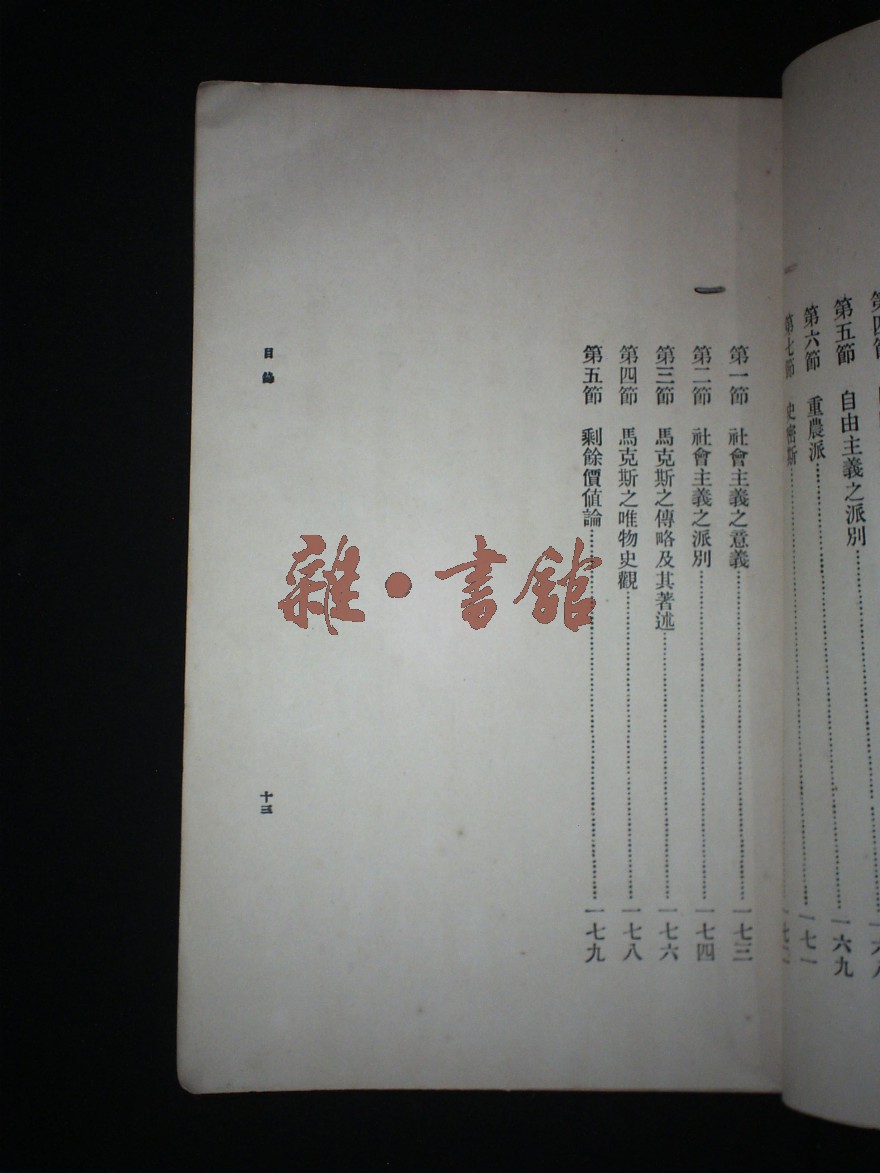 第五節 自由主義之派別 一六九
第六節 重農派 一七一
第七節 史密斯
一
第一節 社會主義之意義 一七三
第二節 社會主義之派別 一七四
第三節 馬克斯之傳略及其著述 一七六
第四節 馬克斯之唯物史觀 一七八
第五節 剩餘價值論 一七九
目錄
十三
雜·書館